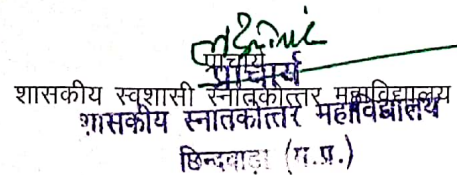 प्राचार्य
प्राचार्य
शासकीय स्वशासी स्नातकोत्तर महाविद्यालय
शासकीय स्नातकोत्तर महाविद्यालय
छिन्दवाड़ा (म.प्र.)